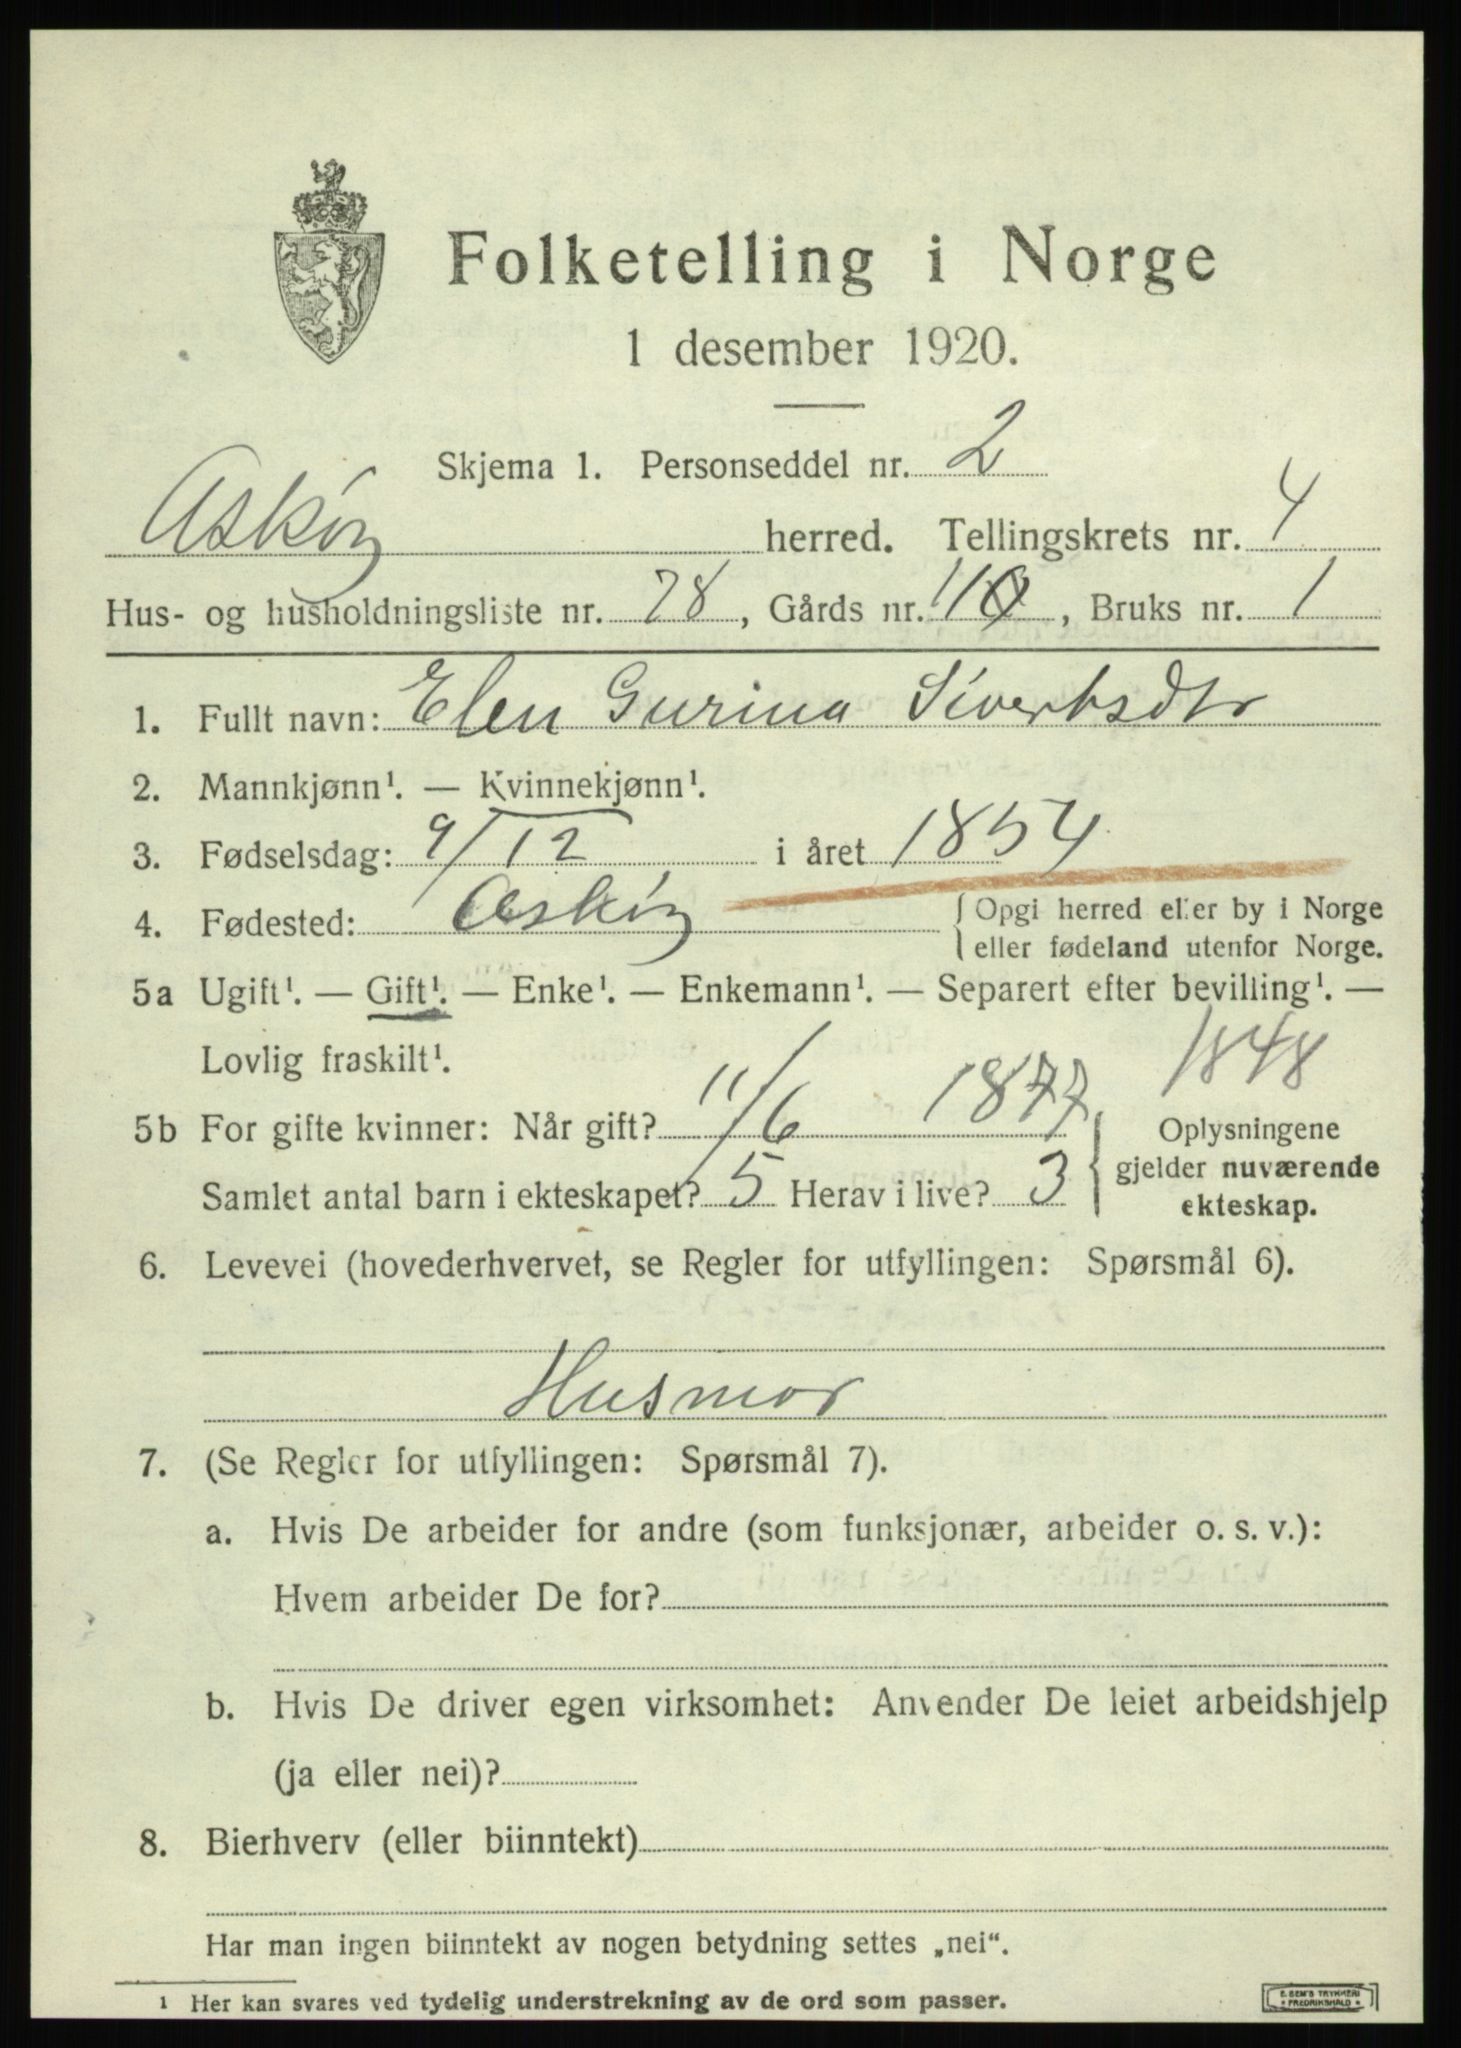 Folketelling i Norge
1 desember 1920.
Skjema 1. Personseddel nr. 2
Askøy herred. Tellingskrets nr. 4
Hus- og husholdningsliste nr. 78, Gårds nr. 10, Bruks nr. 1
1. Fullt navn: Elen Gurina Sivertsdtr
2. Mannkjønn¹. — Kvinnekjønn¹.
3. Fødselsdag: 9/12 i året 1854
4. Fødested: Askøy { Opgi herred eller by i Norge
eller fødeland utenfor Norge.
5a Ugift¹. — Gift¹. — Enke¹. — Enkemann¹. — Separert efter bevilling¹. —
Lovlig fraskilt¹. 1848
5b For gifte kvinner: Når gift? 11/6 1877 Oplysningene
gjelder nuværende
Samlet antal barn i ekteskapet? 5 Herav i live? 3 ekteskap.
6. Levevei (hovederhvervet, se Regler for utfyllingen: Spørsmål 6).
Husmor
7. (Se Regler for utfyllingen: Spørsmål 7).
a. Hvis De arbeider for andre (som funksjonær, arbeider o. s. v.):
Hvem arbeider De for?
b. Hvis De driver egen virksomhet: Anvender De leiet arbeidshjelp
(ja eller nei)?
8. Bierhverv (eller biinntekt)
Har man ingen biinntekt av nogen betydning settes „nei“.
¹ Her kan svares ved tydelig understrekning av de ord som passer.
E. SEM'S TRYKKERI
FREDRIKSHALD